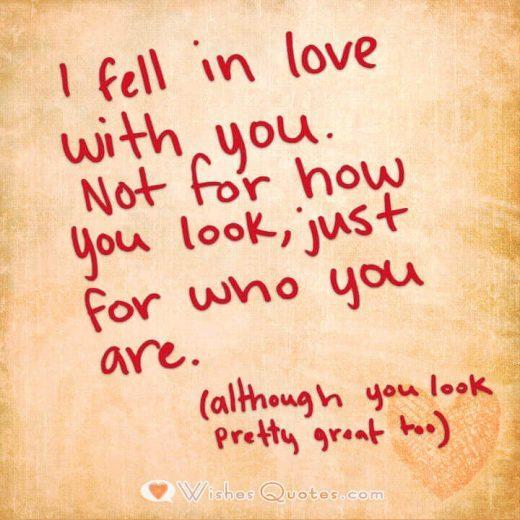 I fell in love
with you.
Not for how
you look, just
for who you
are.
(although you look
pretty great too)
WishesQuotes.com